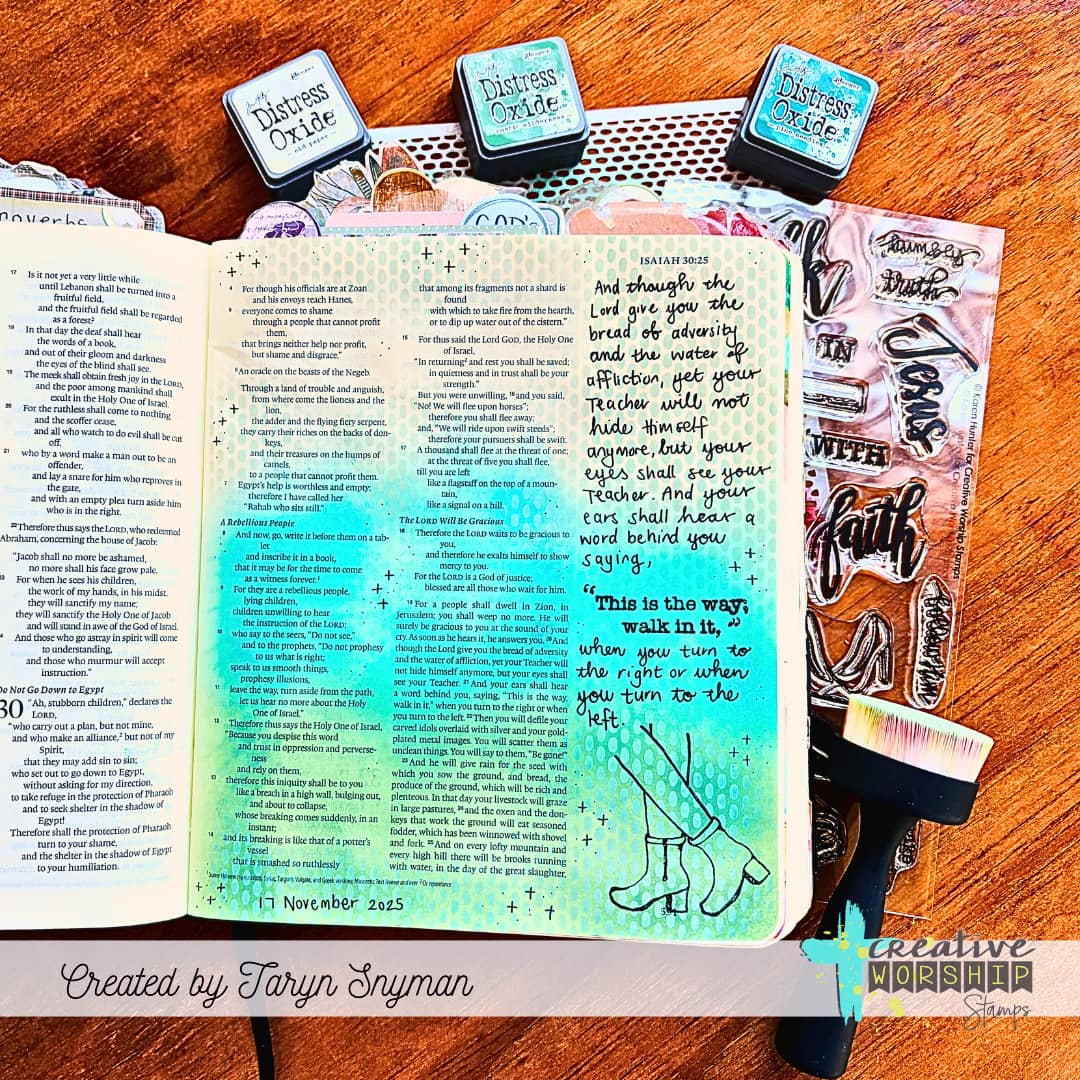 Distress
Oxide
old paper
Distress
Oxide
rustic wilderness
Distress
Oxide
pine needles
Proverbs
GOD'S
17 Is it not yet a very little while
until Lebanon shall be turned into a
fruitful field,
and the fruitful field shall be regarded
as a forest?
18 In that day the deaf shall hear
the words of a book,
and out of their gloom and darkness
the eyes of the blind shall see.
19 The meek shall obtain fresh joy in the LORD,
and the poor among mankind shall
exult in the Holy One of Israel.
20 For the ruthless shall come to nothing
and the scoffer cease,
and all who watch to do evil shall be cut
off,
21 who by a word make a man out to be an
offender,
and lay a snare for him who reproves in
the gate,
and with an empty plea turn aside him
who is in the right.
22 Therefore thus says the LORD, who redeemed
Abraham, concerning the house of Jacob:
"Jacob shall no more be ashamed,
no more shall his face grow pale.
23 For when he sees his children,
the work of my hands, in his midst,
they will sanctify my name;
they will sanctify the Holy One of Jacob
and will stand in awe of the God of Israel.
And those who go astray in spirit will come
to understanding,
and those who murmur will accept
instruction."
Do Not Go Down to Egypt
30 "Ah, stubborn children," declares the
LORD,
"who carry out a plan, but not mine,
and who make an alliance,2 but not of my
Spirit,
that they may add sin to sin;
who set out to go down to Egypt,
without asking for my direction,
to take refuge in the protection of Pharaoh
and to seek shelter in the shadow of
Egypt!
Therefore shall the protection of Pharaoh
turn to your shame,
and the shelter in the shadow of Egypt
to your humiliation.
4 For though his officials are at Zoan
and his envoys reach Hanes,
5 everyone comes to shame
through a people that cannot profit
them,
that brings neither help nor profit,
but shame and disgrace."
6 An oracle on the beasts of the Negeb.
Through a land of trouble and anguish,
from where come the lioness and the
lion,
the adder and the flying fiery serpent,
they carry their riches on the backs of don-
keys,
and their treasures on the humps of
camels,
to a people that cannot profit them.
7 Egypt's help is worthless and empty;
therefore I have called her
"Rahab who sits still."
A Rebellious People
8 And now, go, write it before them on a tab-
let
and inscribe it in a book,
that it may be for the time to come
as a witness forever.1
9 For they are a rebellious people,
lying children,
children unwilling to hear
the instruction of the LORD;
10 who say to the seers, "Do not see,"
and to the prophets, "Do not prophesy
to us what is right;
speak to us smooth things,
prophesy illusions,
11 leave the way, turn aside from the path,
let us hear no more about the Holy
One of Israel."
12 Therefore thus says the Holy One of Israel,
"Because you despise this word
and trust in oppression and perverse-
ness
and rely on them,
13 therefore this iniquity shall be to you
like a breach in a high wall, bulging out,
and about to collapse,
whose breaking comes suddenly, in an
instant;
14 and its breaking is like that of a potter's
vessel
that is smashed so ruthlessly
that among its fragments not a shard is
found
with which to take fire from the hearth,
or to dip up water out of the cistern."
15 For thus said the Lord GOD, the Holy One
of Israel,
"In returning2 and rest you shall be saved;
in quietness and in trust shall be your
strength."
But you were unwilling, 16 and you said,
"No! We will flee upon horses";
therefore you shall flee away;
and, "We will ride upon swift steeds";
therefore your pursuers shall be swift.
17 A thousand shall flee at the threat of one;
at the threat of five you shall flee,
till you are left
like a flagstaff on the top of a moun-
tain,
like a signal on a hill.
The LORD Will Be Gracious
18 Therefore the LORD waits to be gracious to
you,
and therefore he exalts himself to show
mercy to you.
For the LORD is a God of justice;
blessed are all those who wait for him.
19 For a people shall dwell in Zion, in
Jerusalem; you shall weep no more. He will
surely be gracious to you at the sound of your
cry. As soon as he hears it, he answers you. 20 And
though the Lord give you the bread of adversity
and the water of affliction, yet your Teacher will
not hide himself anymore, but your eyes shall
see your Teacher. 21 And your ears shall hear
a word behind you, saying, "This is the way,
walk in it," when you turn to the right or when
you turn to the left. 22 Then you will defile your
carved idols overlaid with silver and your gold-
plated metal images. You will scatter them as
unclean things. You will say to them, "Be gone!"
23 And he will give rain for the seed with
which you sow the ground, and bread, the
produce of the ground, which will be rich and
plenteous. In that day your livestock will graze
in large pastures, 24 and the oxen and the don-
keys that work the ground will eat seasoned
fodder, which has been winnowed with shovel
and fork. 25 And on every lofty mountain and
every high hill there will be brooks running
with water, in the day of the great slaughter,
17 November 2025
ISAIAH 30:25
And though the
Lord give you the
bread of adversity
and the water of
affliction, yet your
Teacher will not
hide Himself
anymore, but your
eyes shall see your
Teacher. And your
ears shall hear a
word behind you
saying,
"This is the way,
walk in it,"
when you turn to
the right or when
you turn to the
left.
humbly
truth
Jesus
IN
WITH
faith
© Karen Hunter for Creative Worship Stamps
Created by Taryn Snyman
Creative
WORSHIP
Stamps